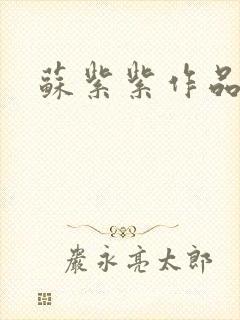 蘇紫紫作品
嚴永亮太郎